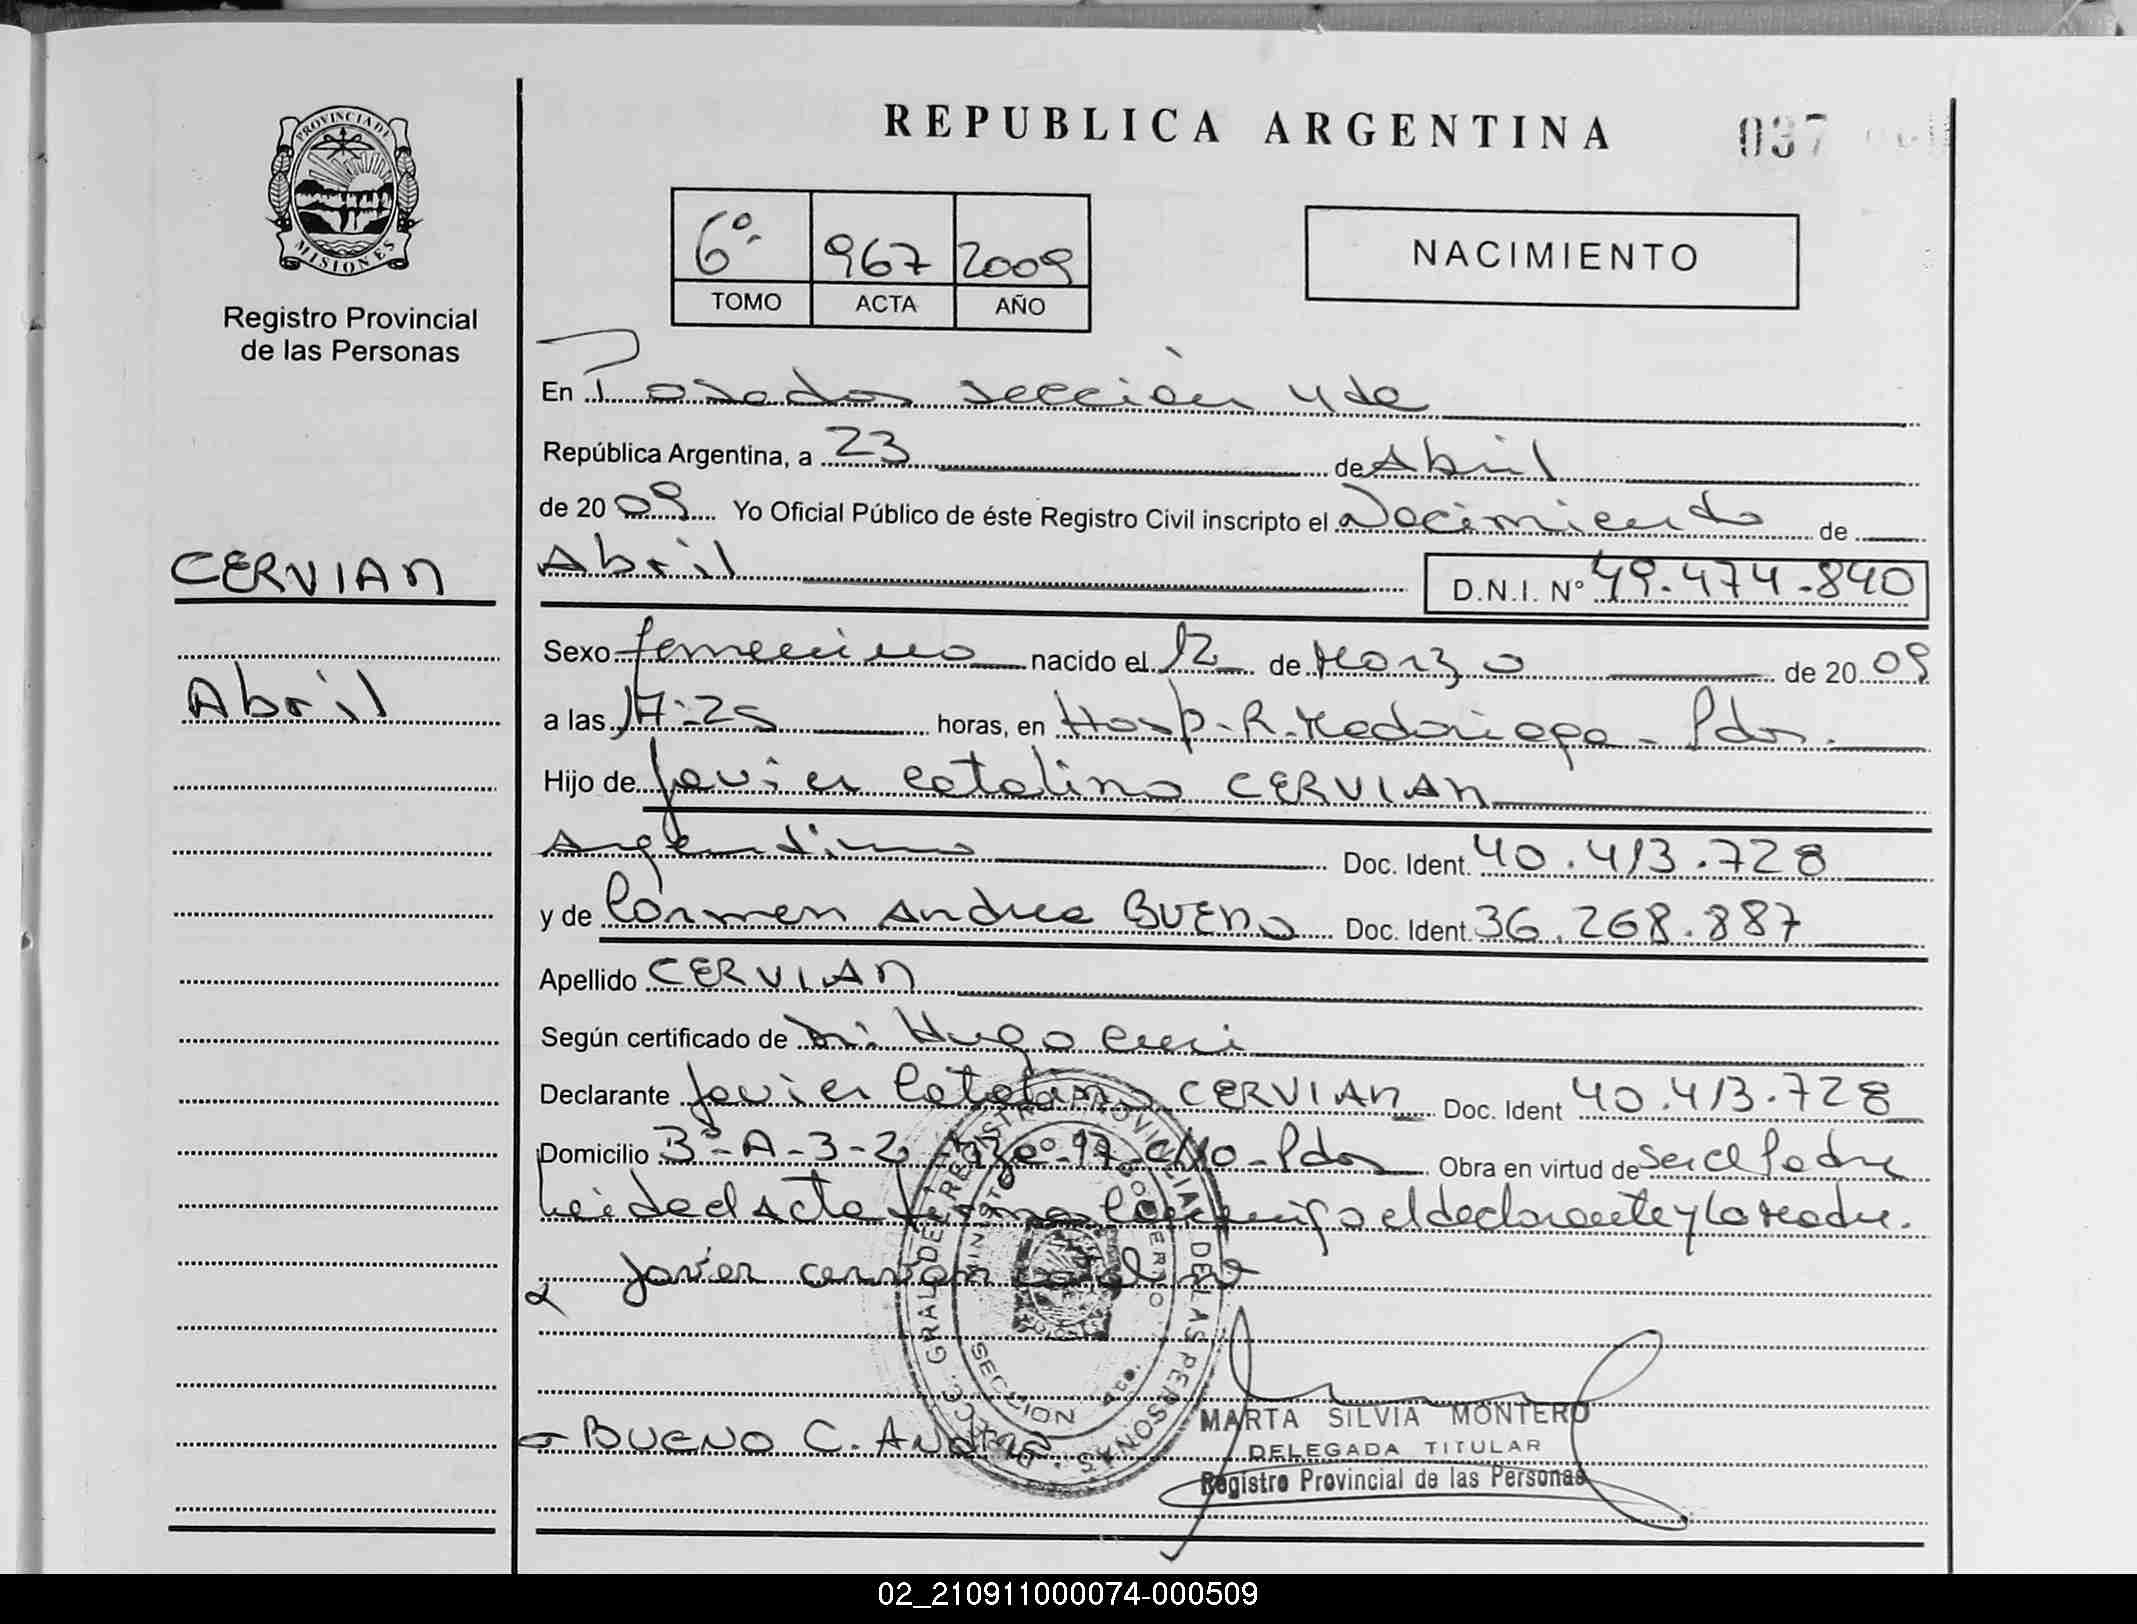 REPUBLICA ARGENTINA
037
PROVINCIA DE
MISIONES
Registro Provincial
de las Personas
6º 967 2009
TOMO ACTA AÑO
NACIMIENTO
En Posadas sección 4ta
República Argentina, a 23 de Abril
de 2009 Yo Oficial Público de éste Registro Civil inscripto el Nacimiento de
CERVIAN
Abril
D.N.I. Nº 49.474.840
Sexo femenino nacido el 12 de Marzo de 2009
Abril
a las 17:25 horas, en Hosp. R. Madariaga - Pdas.
Hijo de Javier Catalino CERVIAN
Argentino Doc. Ident. 40.413.728
y de Carmen Andrea BUENO Doc. Ident. 36.268.887
Apellido CERVIAN
Según certificado de Dr. Hugo
Declarante Javier Catalino CERVIAN Doc. Ident 40.413.728
Domicilio 3º-A-3-2 Pdas Obra en virtud de ser el Padre
Leida el Acta firman conmigo el declarante y la Madre.
Javier cervian
BUENO C. Andrea
GRAL DE REGISTRO PROVINCIAL DE LAS PERSONAS
SECCION
MARTA SILVIA MONTERO
DELEGADA TITULAR
Registro Provincial de las Personas
02_210911000074-000509